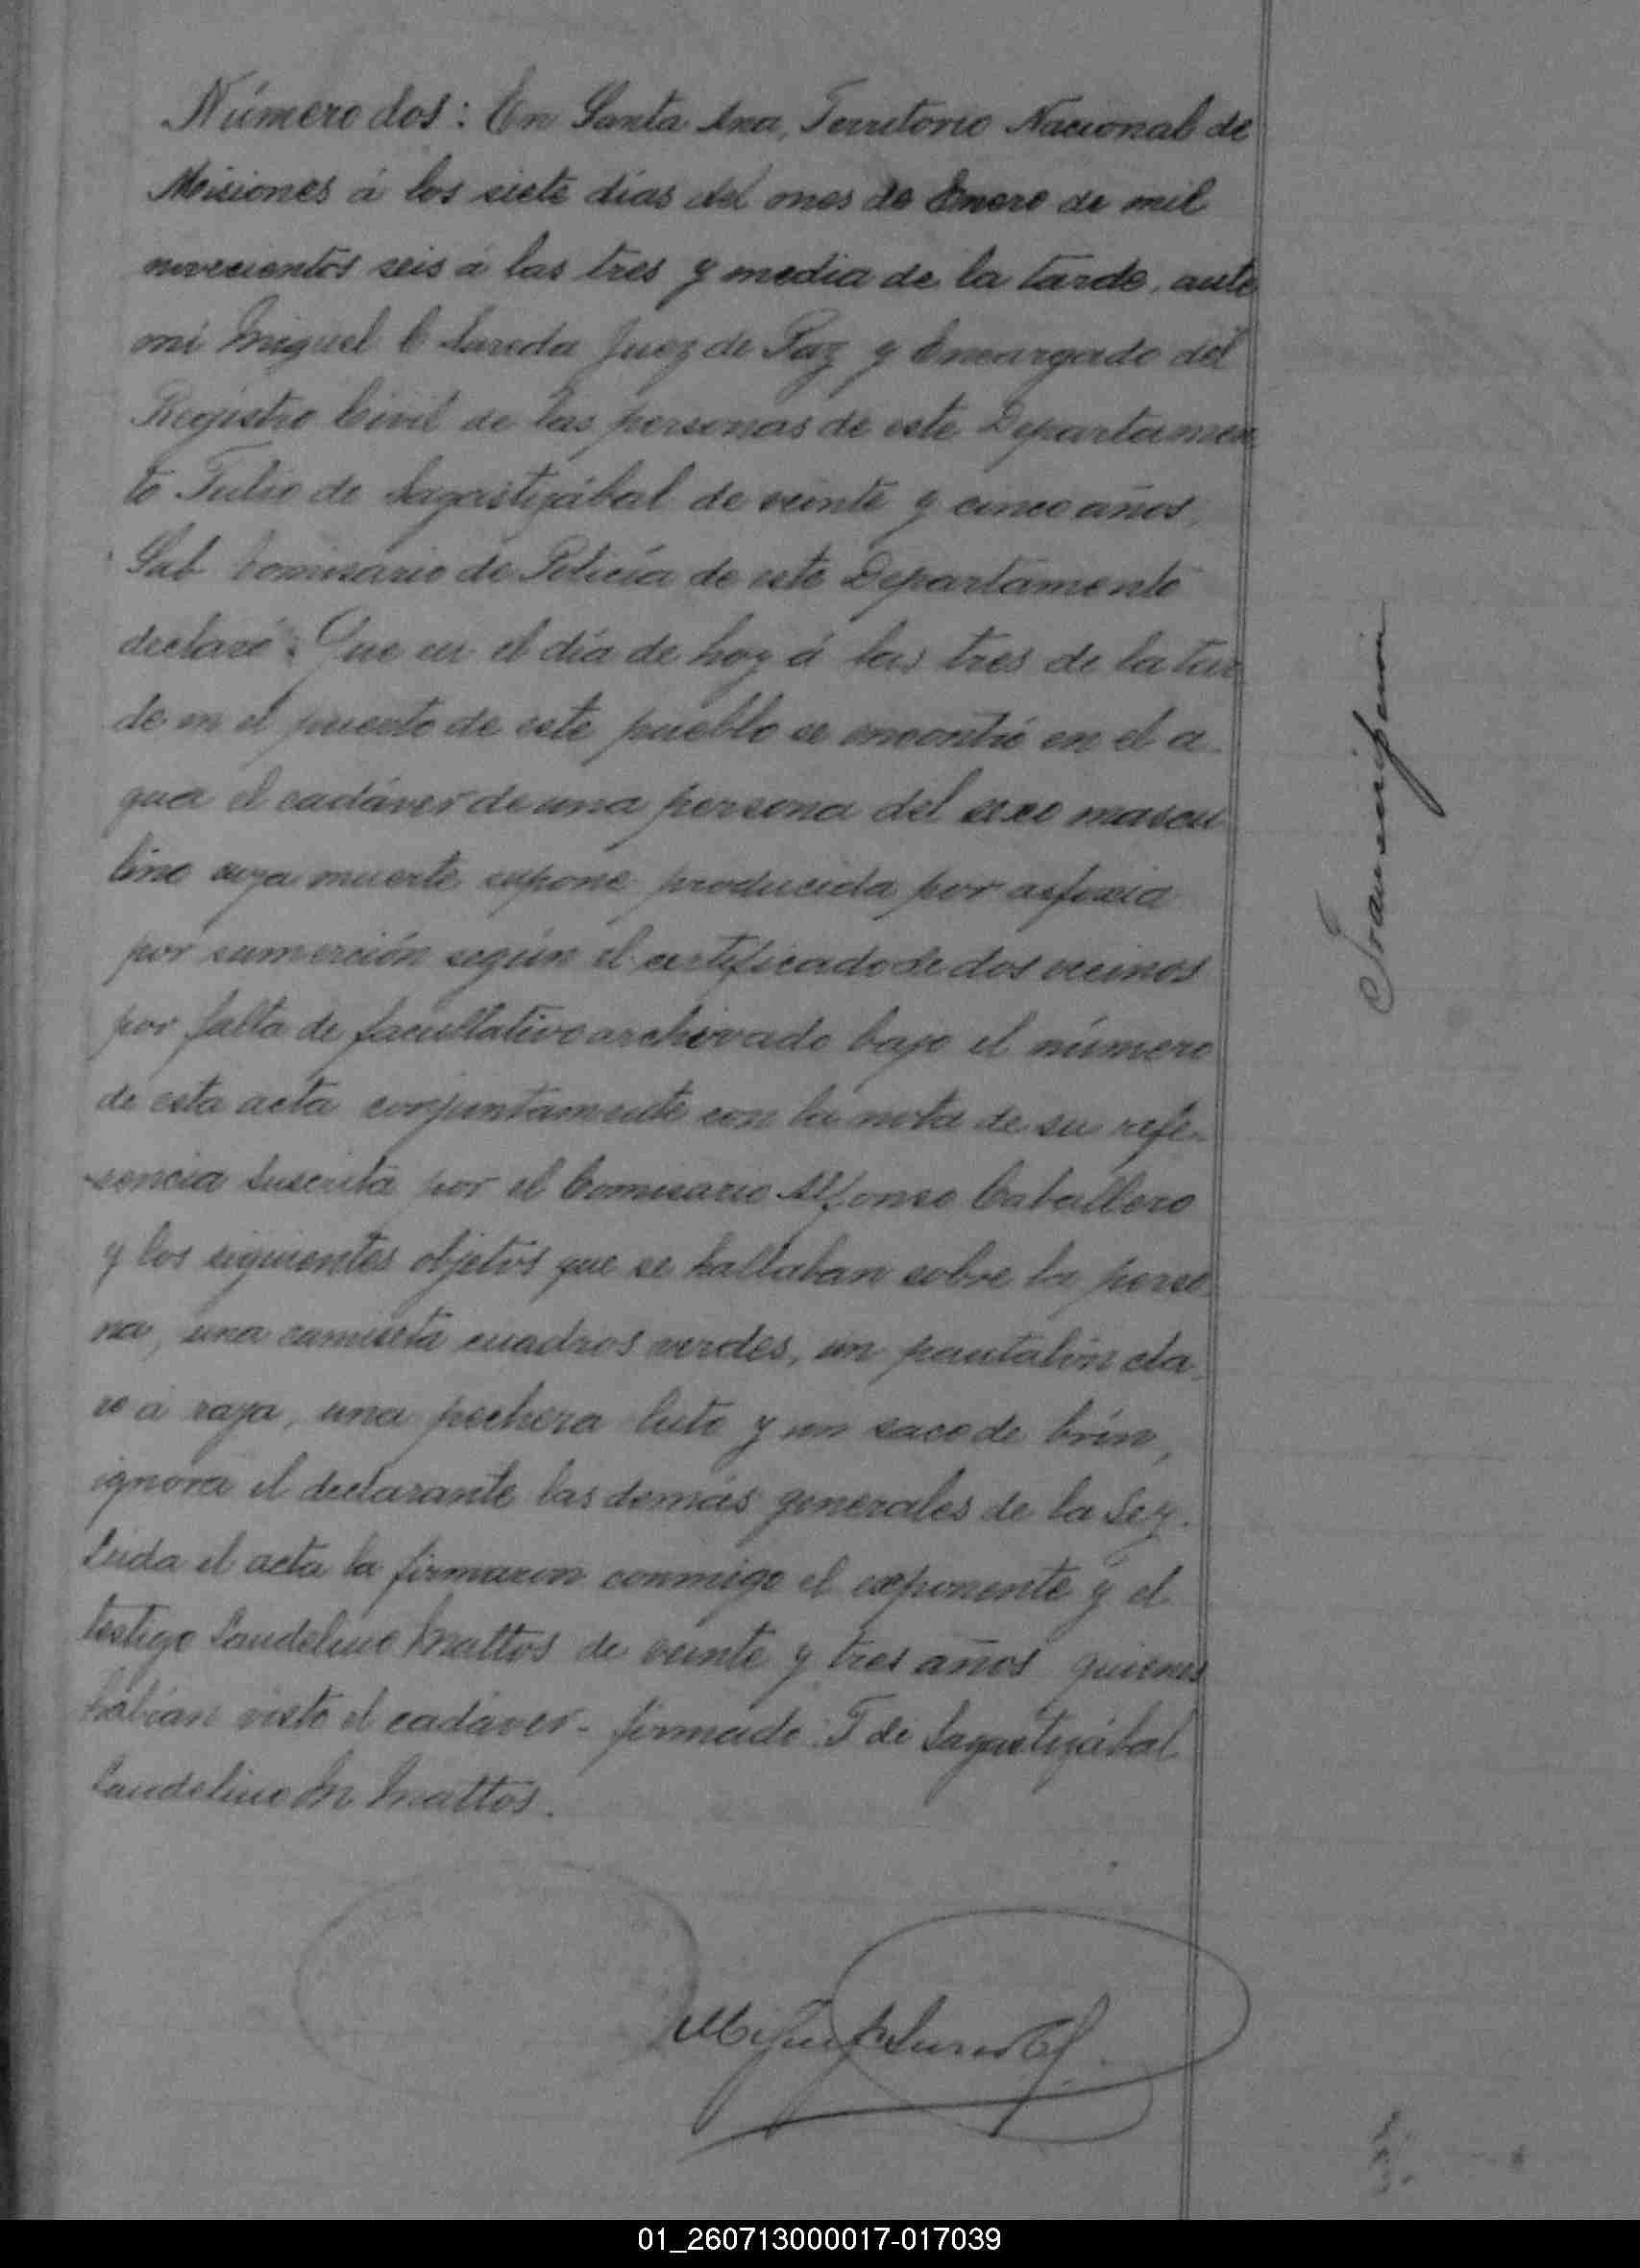 Número dos: En Santa Ana, Territorio Nacional de
Misiones á los siete días del mes de Enero de mil
novecientos seis á las tres y media de la tarde, ante
mi Miguel C Lareda Juez de Paz y Encargado del
Registro Civil de las personas de este Departamen
to Tulio de Sagastizábal de veinte y cinco años,
Sub Comisario de Policía de este Departamento
declaró: Que en el día de hoy á las tres de la tar
de en el puerto de este pueblo se encontró en el a
gua el cadáver de una persona del sexo mascu
lino cuya muerte supone producida por asfixia
por sumerción según el certificado de dos vecinos
por falta de facultativo archivado bajo el número
de esta acta conjuntamente con la nota de su refe-
rencia suscrita por el Comisario Alfonso Caballero
y los siguientes objetos que se hallaban sobre la perso
na, una camiseta cuadros verdes, un pantalón cla
ro á raya, una pechera luto y un saco de brin,
ignora el declarante las demás generales de la Ley.
Leida el acta la firmaron conmigo el exponente y el
testigo Laudelino Mattos de veinte y tres años quienes
habían visto el cadáver- firmado: T de Sagastizábal
Laudelino M Mattos.
Transcripcion
01_260713000017-017039